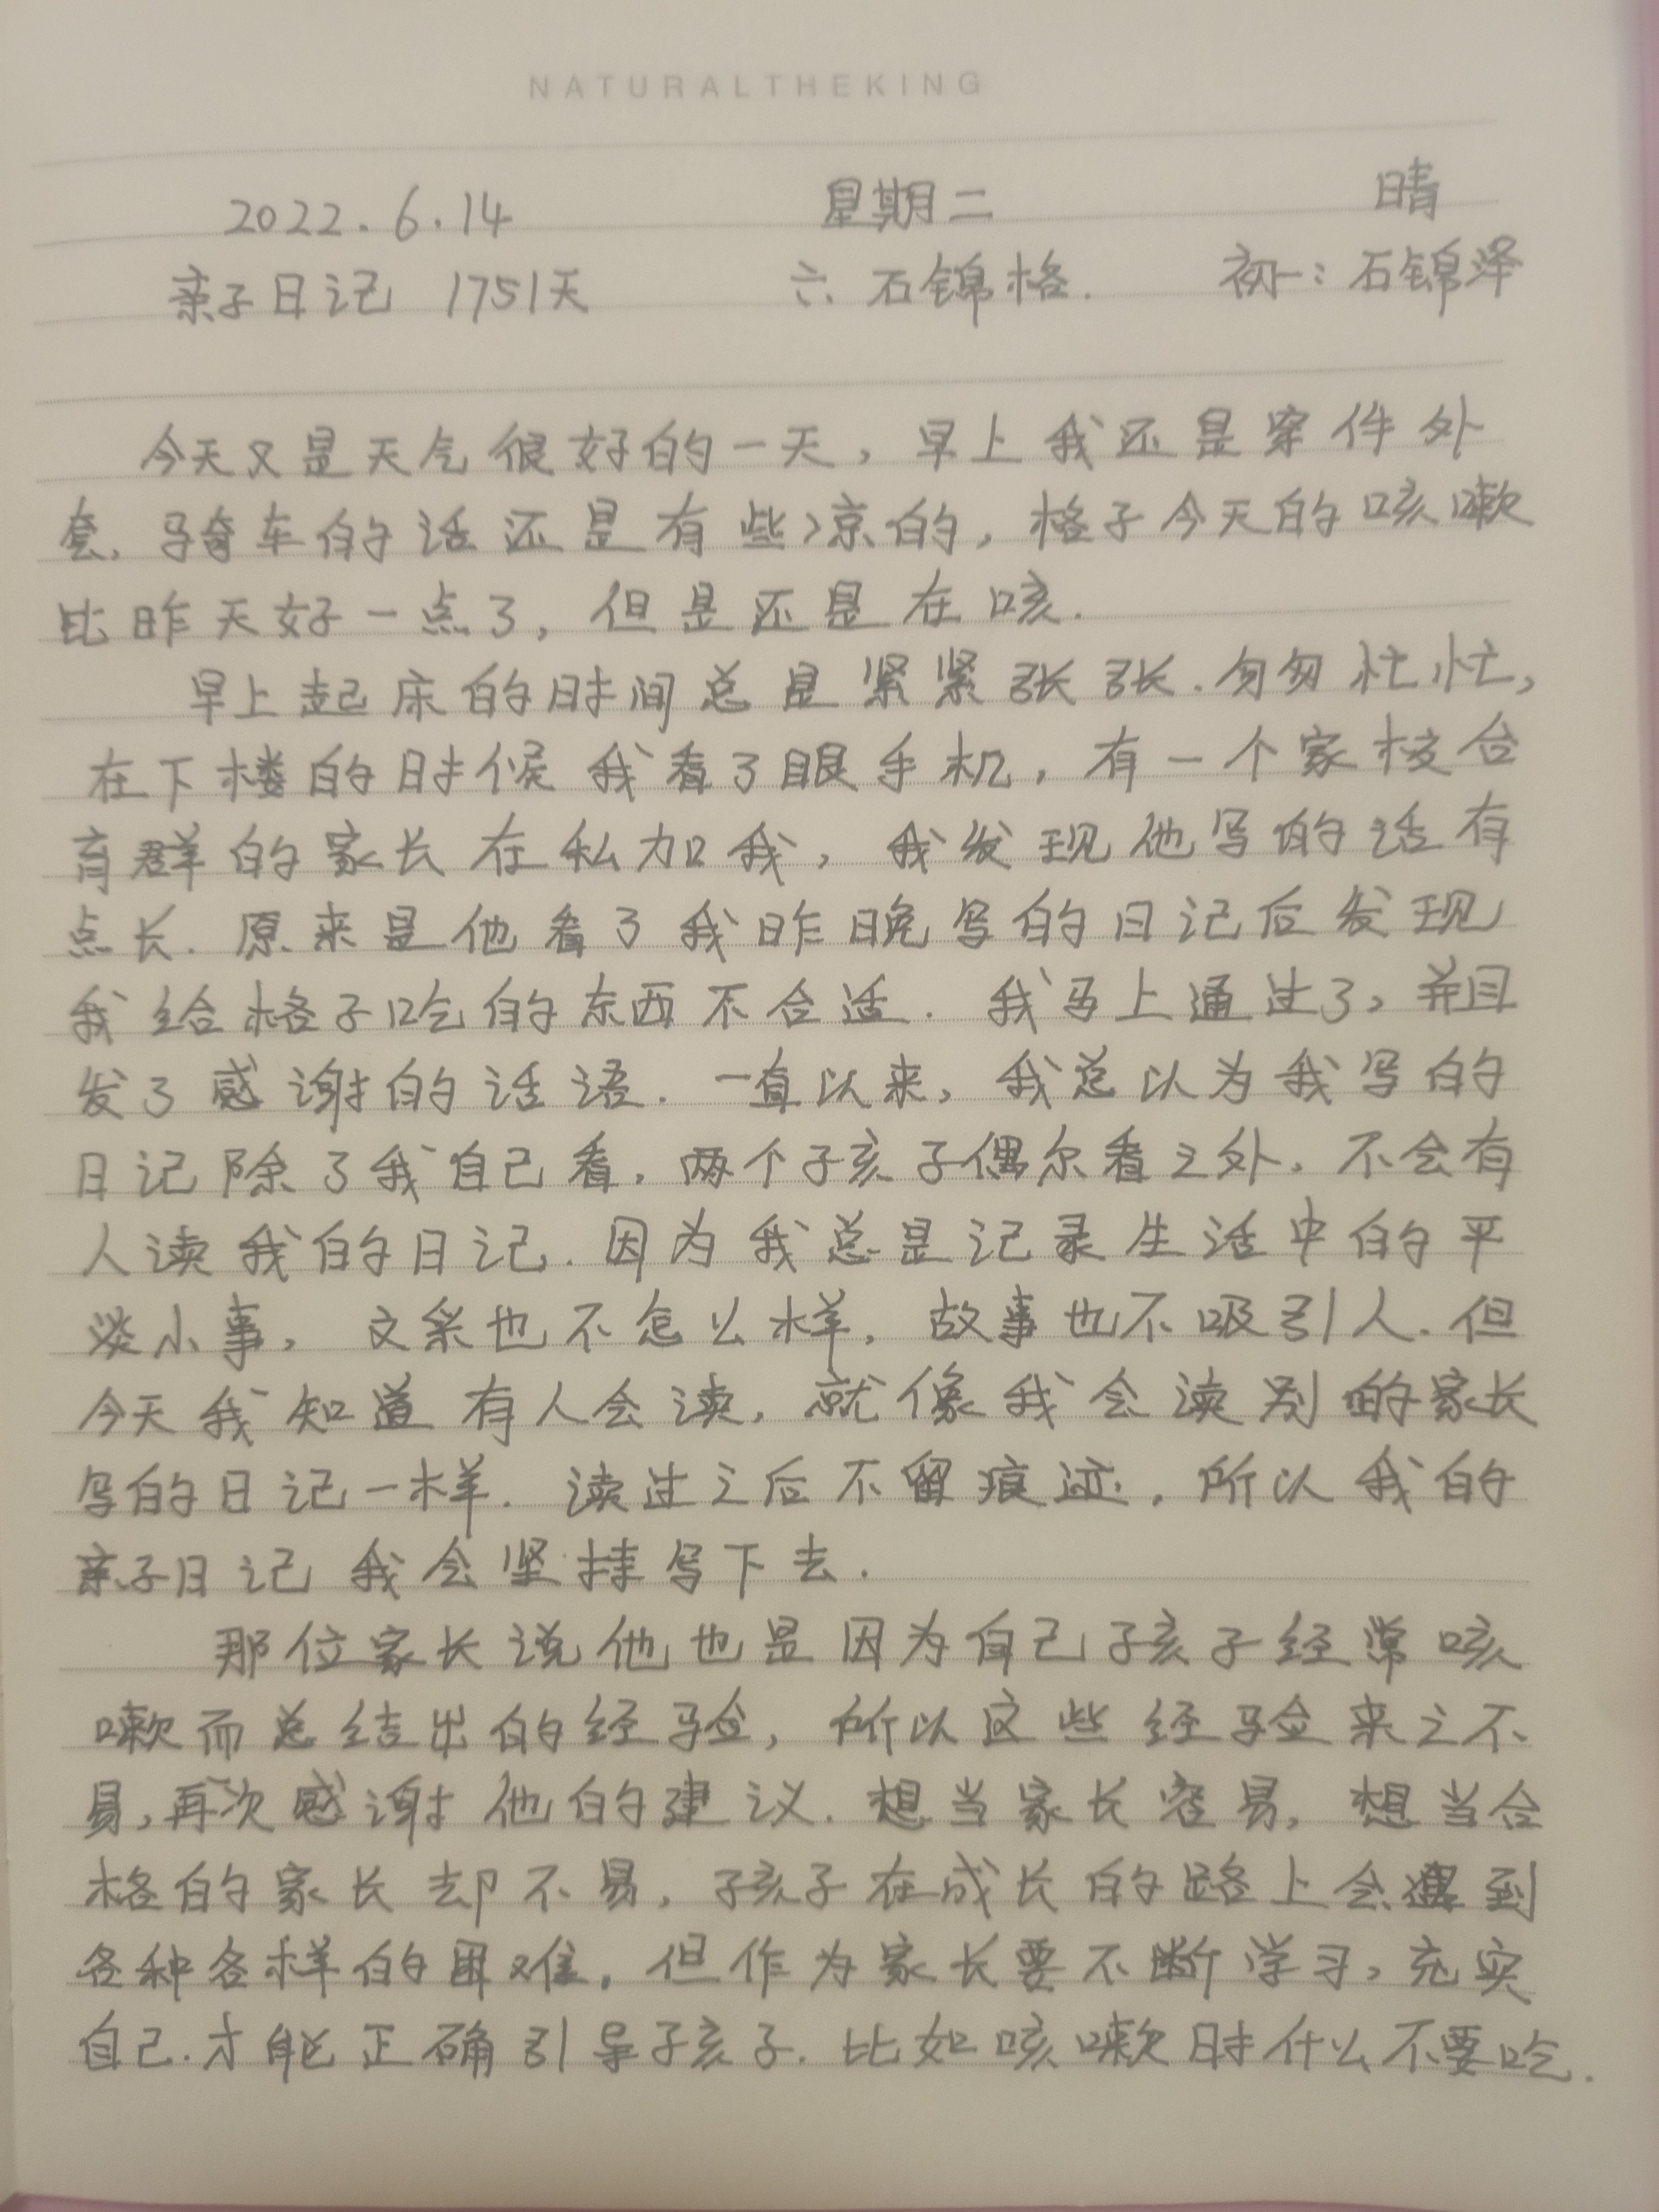 NATURALTHEKING
2022.6.14 星期二 晴
亲子日记 1751天 六、石锦格. 初一:石锦泽
今天又是天气很好的一天,早上我还是穿件外
套,骑车的话还是有些凉的,格子今天的咳嗽
比昨天好一点了,但是还是在咳.
早上起床的时间总是紧紧张张.匆匆忙忙,
在下楼的时候我看了眼手机,有一个家校合
育群的家长在私加我,我发现他写的话有
点长.原来是他看了我昨晚写的日记后发现
我给格子吃的东西不合适.我马上通过了,并且
发了感谢的话语.一直以来,我总以为我写的
日记除了我自己看,两个孩子偶尔看之外,不会有
人读我的日记.因为我总是记录生活中的平
淡小事,文采也不怎么样,故事也不吸引人.但
今天我知道有人会读,就像我会读别的家长
写的日记一样.读过之后不留痕迹,所以我的
亲子日记我会坚持写下去.
那位家长说他也是因为自己孩子经常咳
嗽而总结出的经验,所以这些经验来之不
易,再次感谢他的建议.想当家长容易,想当合
格的家长却不易,孩子在成长的路上会遇到
各种各样的困难,但作为家长要不断学习,充实
自己.才能正确引导孩子.比如咳嗽时什么不要吃.